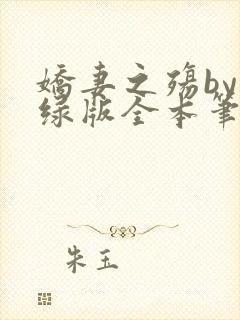 娇妻之殇by
绿版全本笔
朱玉